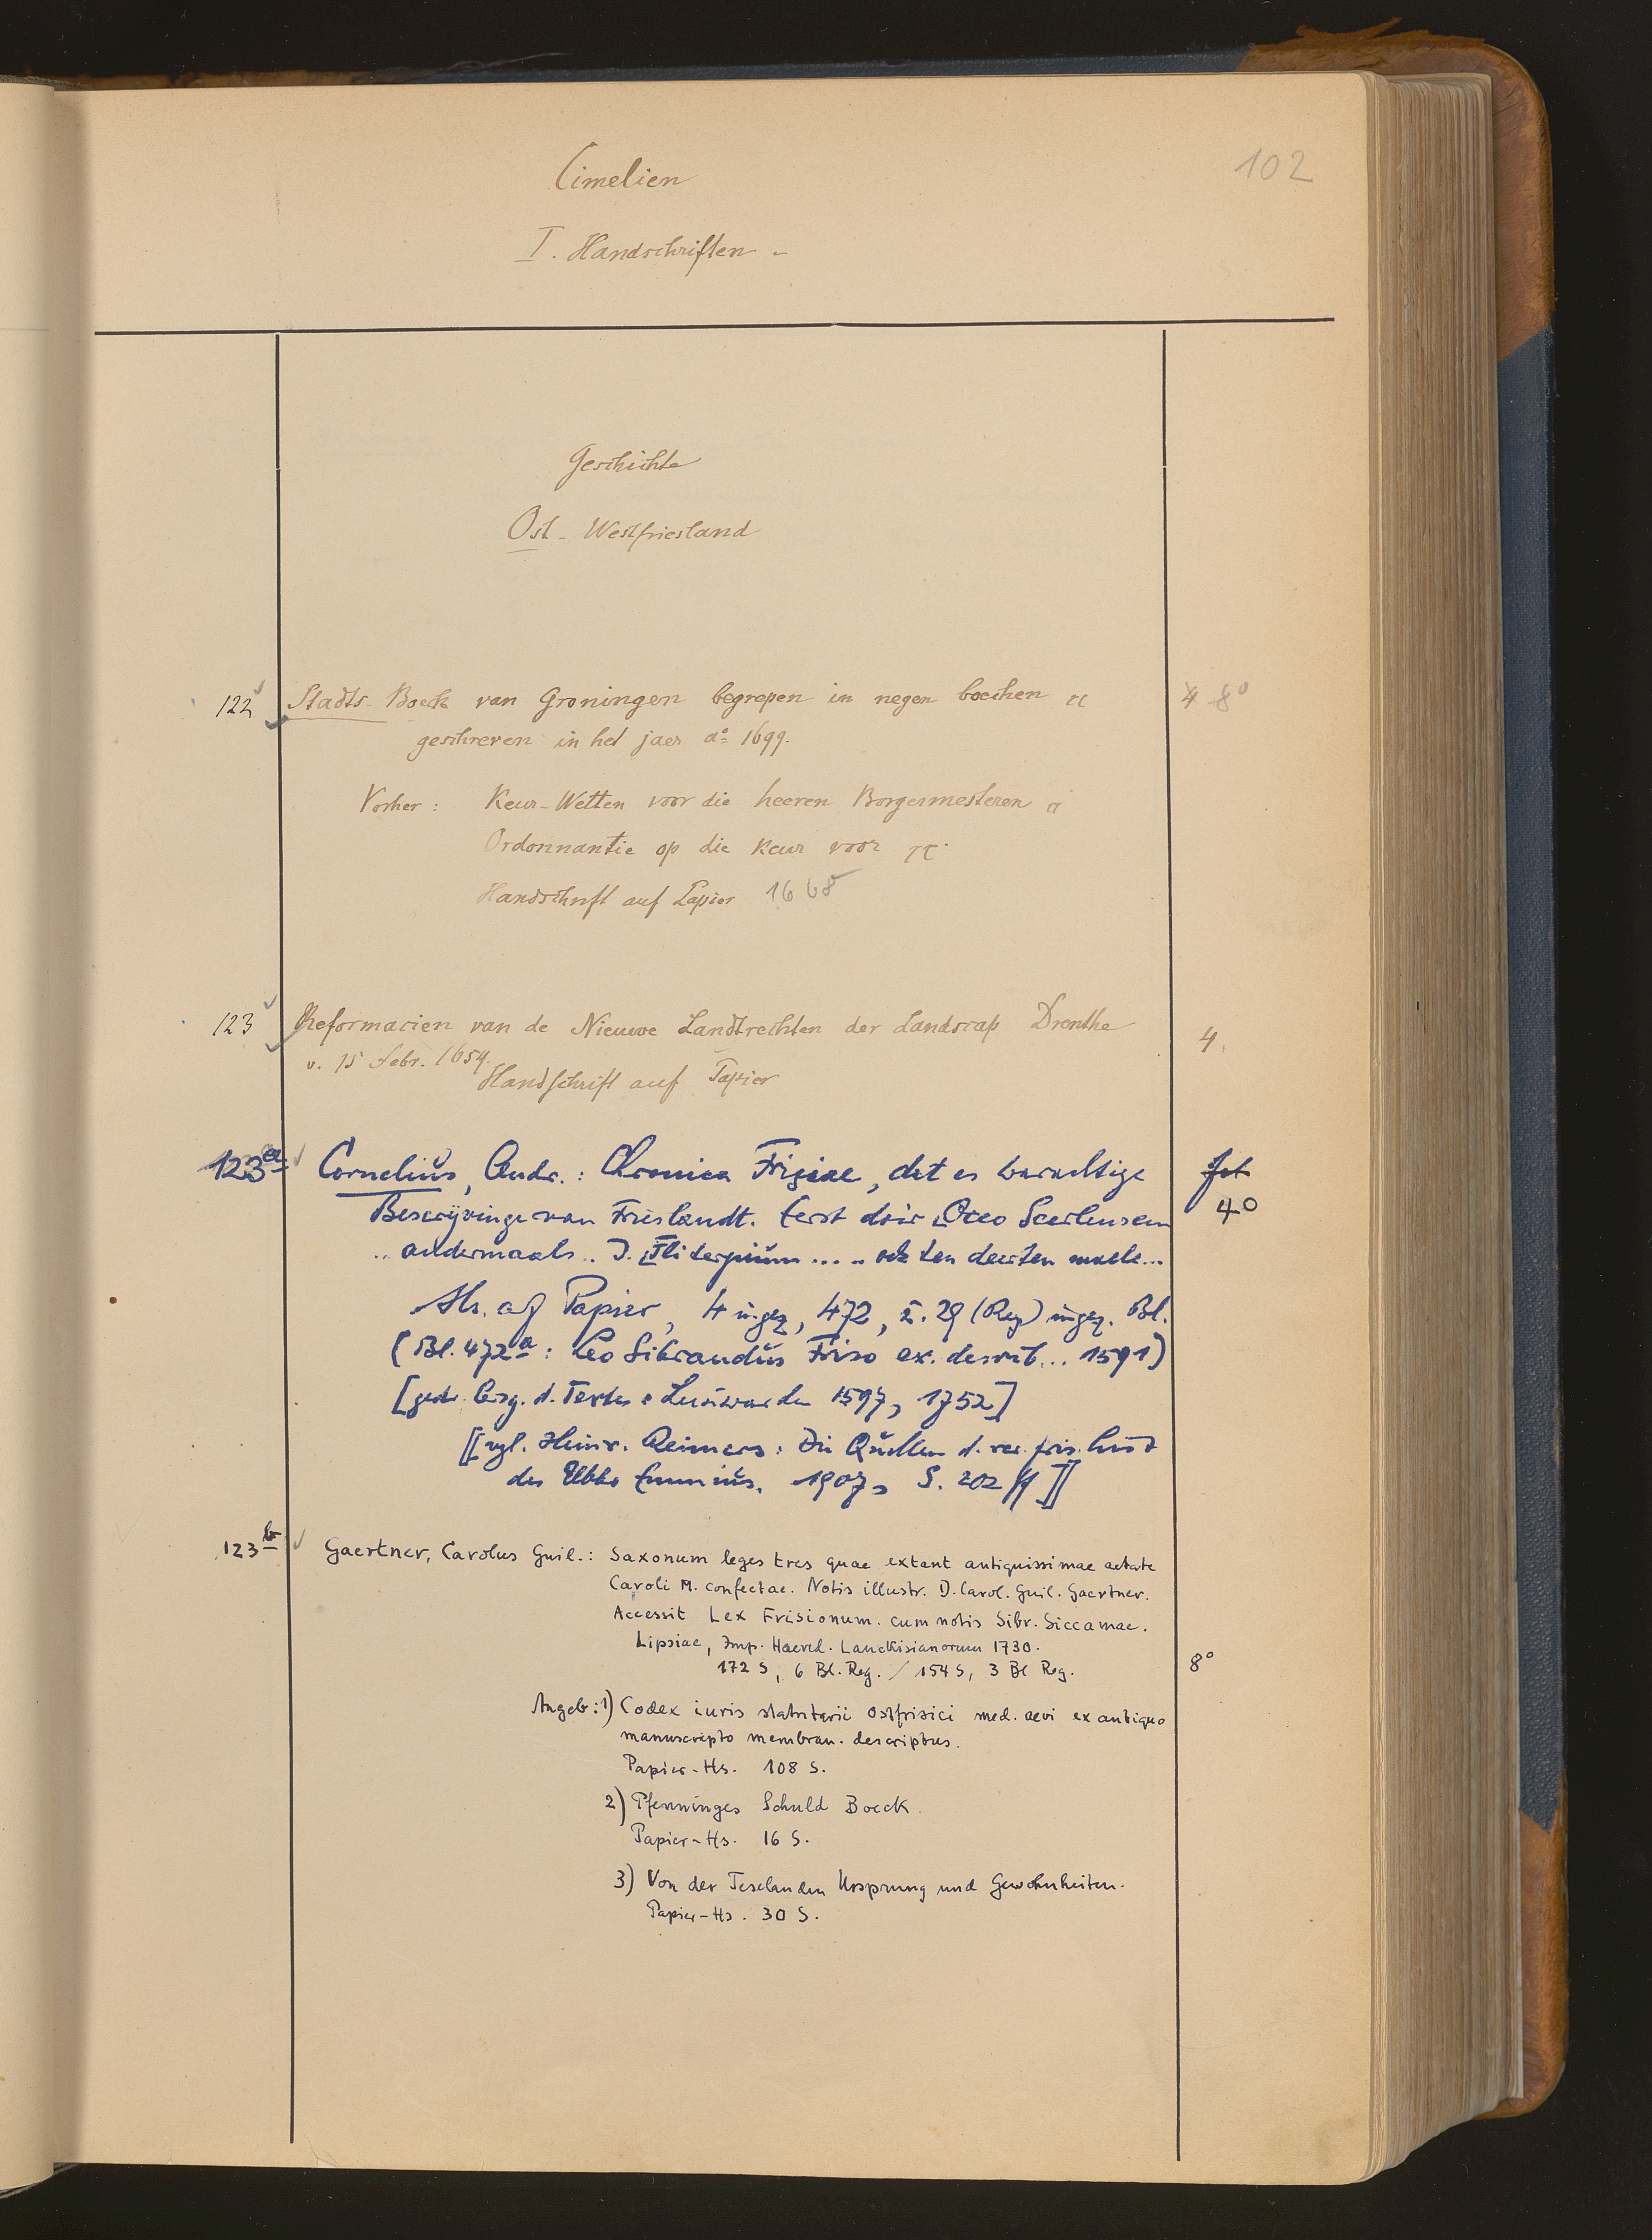 102
Cimelien
I. Handschriften
Geschichte
Ost-Westfriesland
122 Stadts-Boeck van Groningen begrepen in negen boecken 4 8°
geschreven in het jaer a° 1699.
Vorher: Keur-Wetten voor die heeren Borgermesteren
Ordonnantie op die Keur voor
Handschrift auf Papier 1668
123 Reformacien van de Nieuwe Landtrechten der Landscap Drenthe 4.
v. 15 Febr. 1654.
Handschrift auf Papier
123a Cornelius, Andr.: Chronica Frisiae, dat es warachtige fol
Bescrijvinge van Frieslandt. Eerst doir Occo Scerlensem 4°
.. andermaals .. J. Vlitarpium .... ten derten maele...
Hs. auf Papier, 4 ungez, 472, u. 29 (Reg) ungez. Bl.
(Bl. 472a: Leo Sibrandus Friso ex. describ... 1591)
[gedr. Ausg. d. Textes: Leuwarden 1597, 1752]
[[vgl. Heinr. Reimers: Die Quellen d. rer. fris. hist
des Ubbo Emmius. 1907, S. 202 ff]]
123b Gaertner, Carolus Guil.: Saxonum leges tres quae extant antiquissimae aetate
Caroli M. confectae. Notis illustr. D. Carol. Guil. Gaertner.
Accessit Lex Frisionum. cum notis Sibr. Siccamae.
Lipsiae, Imp. Haered. Lanckisianorum 1730.
172 S, 6 Bl. Reg. / 154 S, 3 Bl Reg. 8°
Angeb: 1) Codex iuris statutarii Ostfrisici med. aevi ex antiquo
manuscripto membran. descriptus.
Papier-Hs. 108 S.
2) Pfenninges Schuld Boeck.
Papier-Hs. 16 S.
3) Von der Ursprung und Gewohnheiten.
Papier-Hs. 30 S.